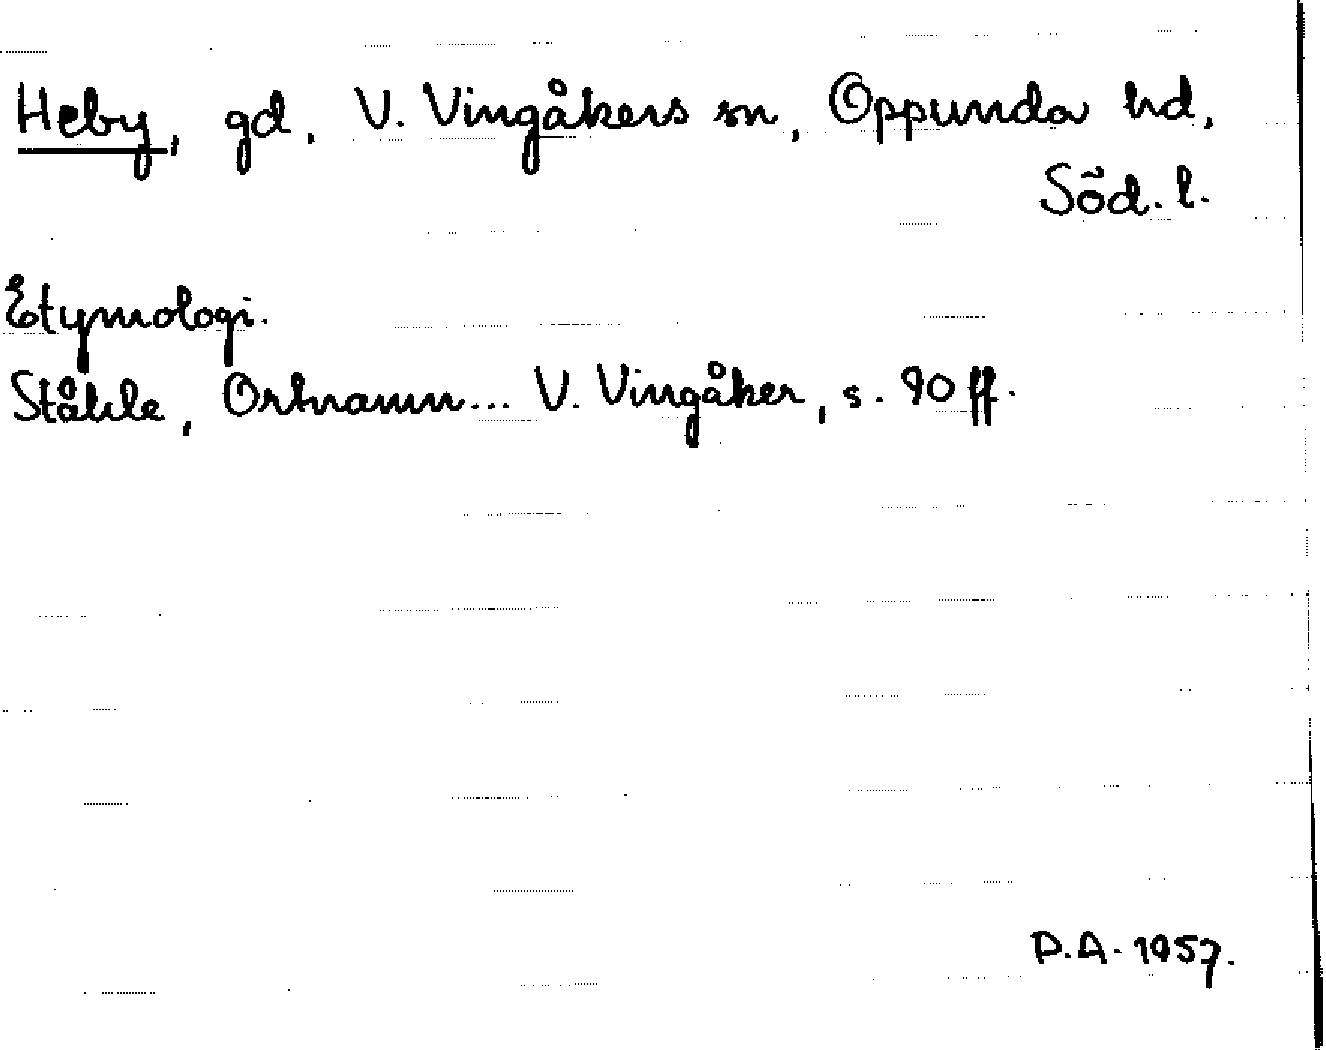 Heby, gd, V. Vingåkers sn, Oppunda hd,
Söd. l.
Etymologi.
Ståhle, Ortnamn... V. Vingåker, s. 90 ff.
D.A. 1957.